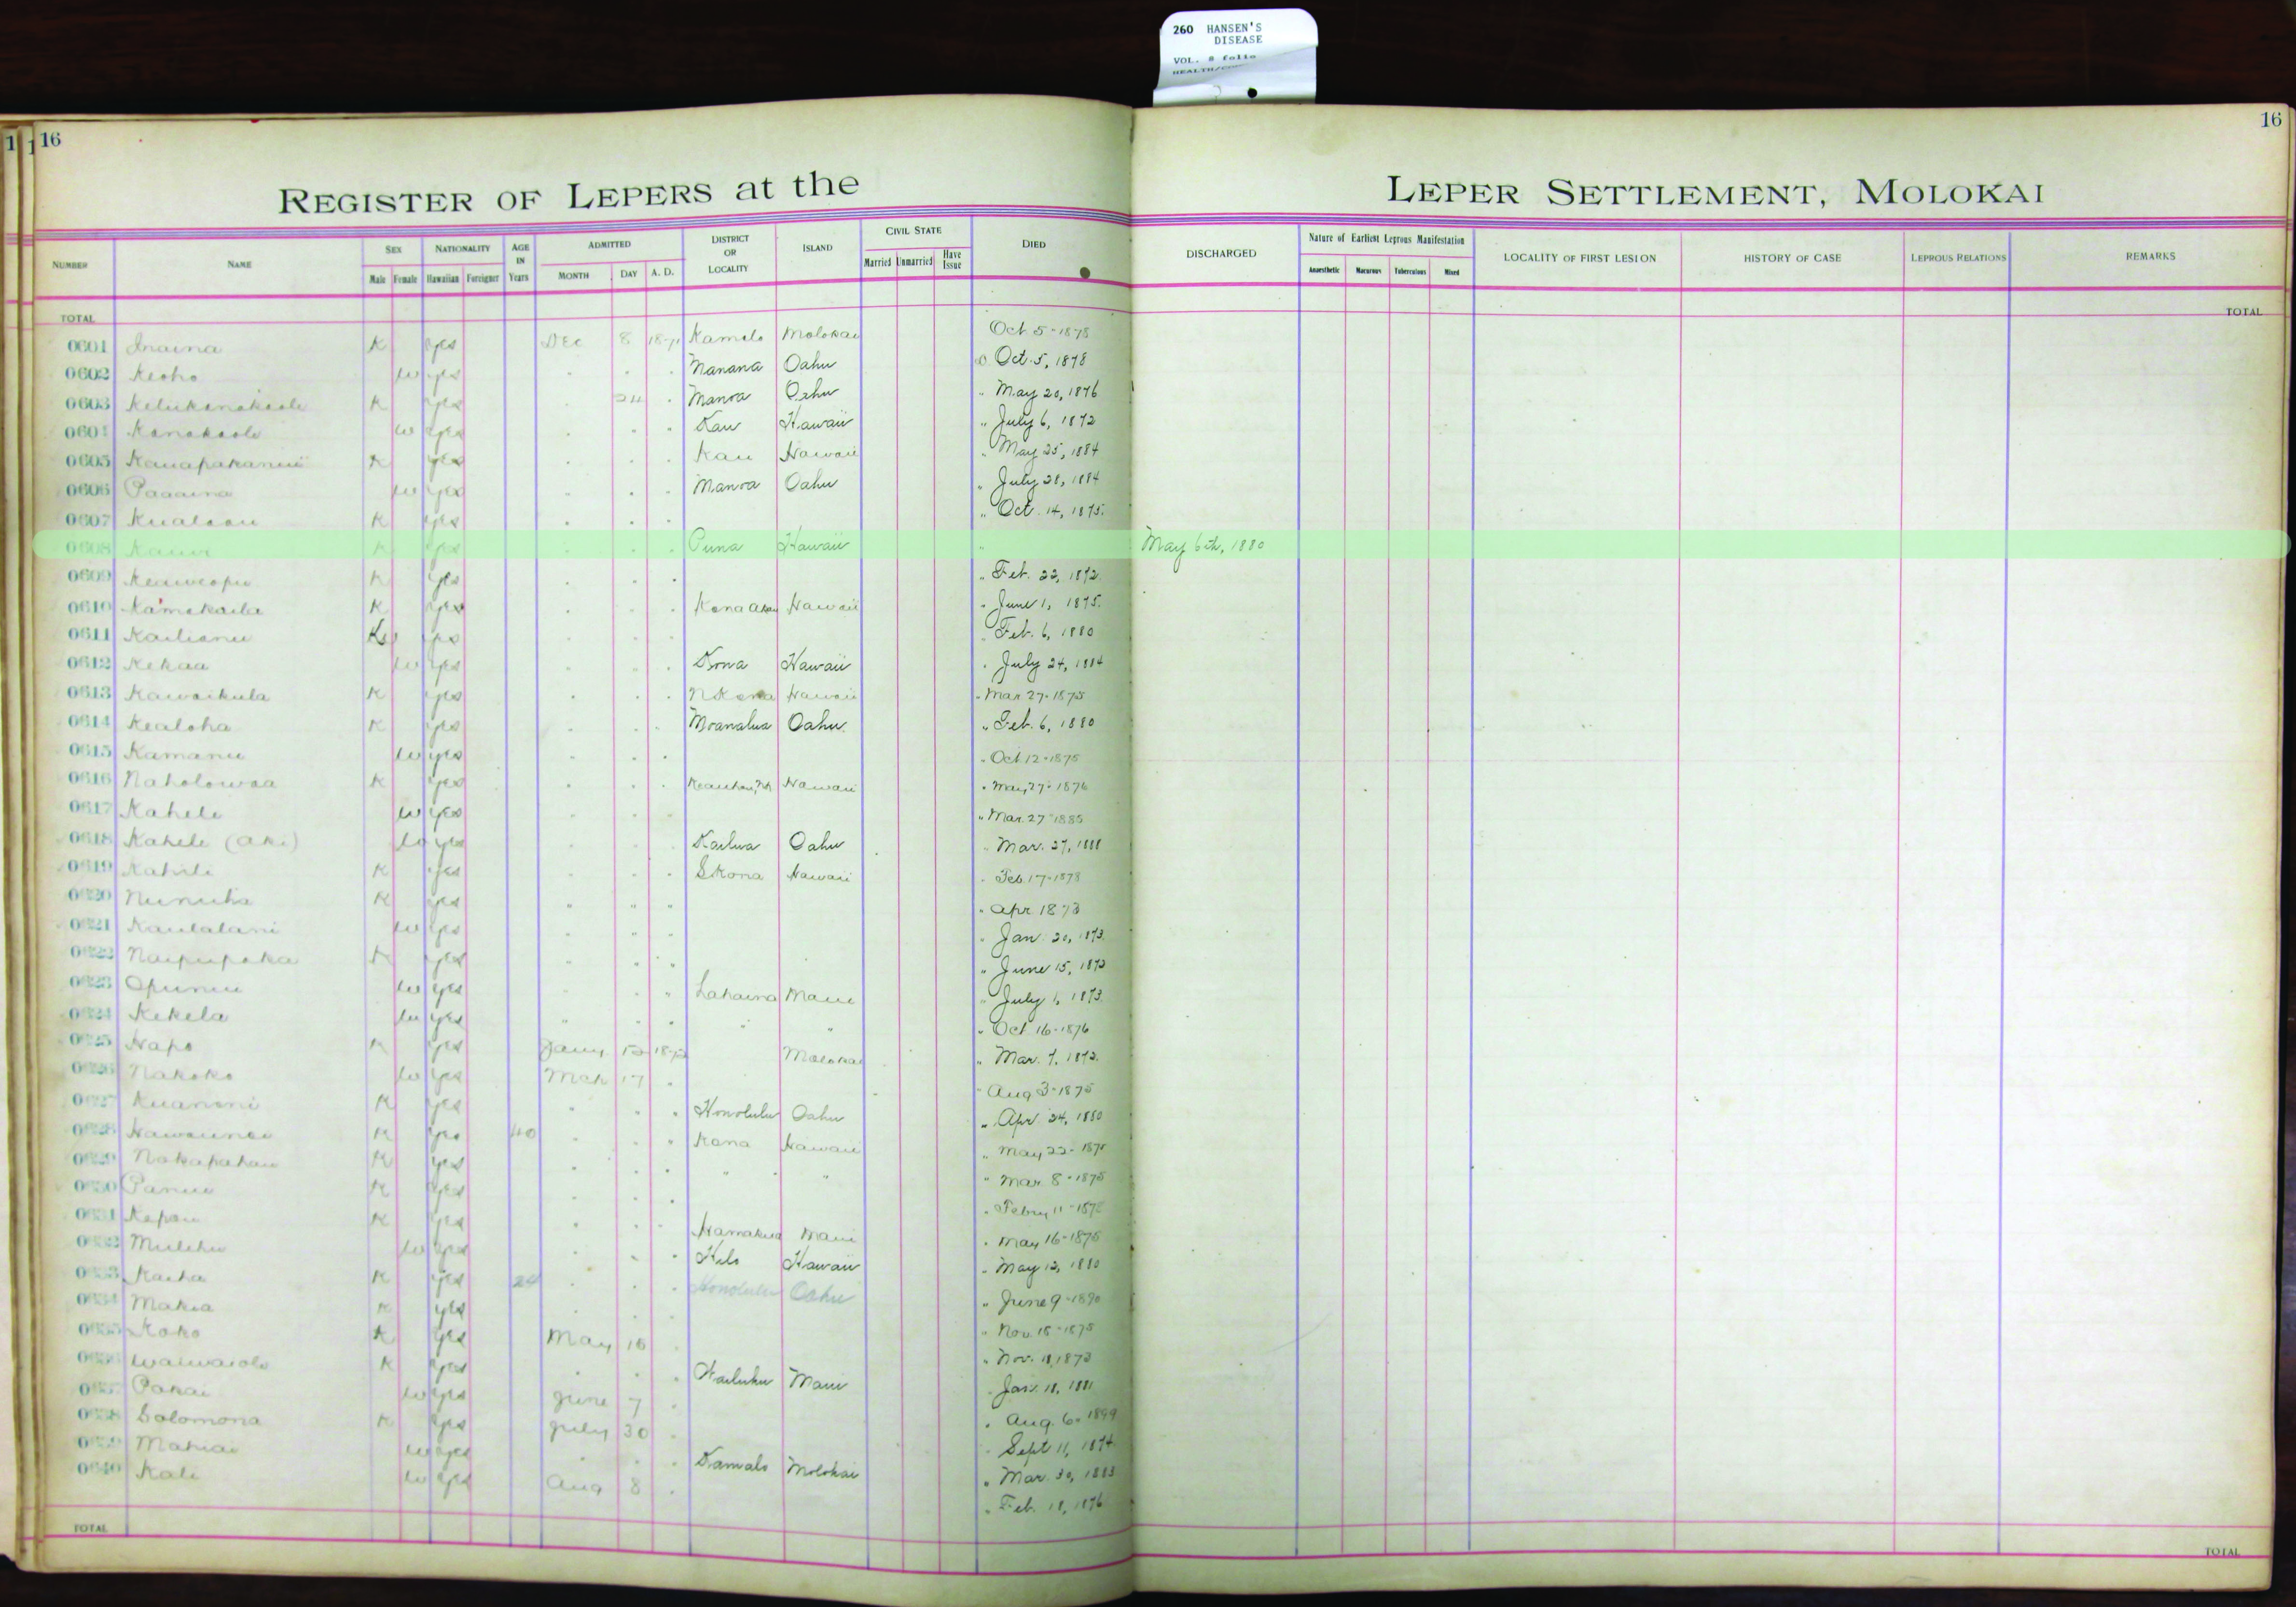 260 HANSEN'S
DISEASE
VOL. 8 folio
16
16
REGISTER OF LEPERS at the
LEPER SETTLEMENT, MOLOKAI
NUMBER NAME SEX NATIONALITY AGE IN Years ADMITTED DISTRICT OR LOCALITY ISLAND CIVIL STATE DIED DISCHARGED Nature of Earliest Leprous Manifestation LOCALITY OF FIRST LESION HISTORY OF CASE LEPROUS RELATIONS REMARKS
Male Female Hawaiian Foreigner MONTH DAY A. D. Married Unmarried Have Issue Anaesthetic Macurous Tuberculous Mixed
TOTAL TOTAL
0601 Inaina K yes Dec 8 1871 Kamalo Molokai Oct 5-1878
0602 Keoho W yes Manana Oahu Oct. 5, 1878
0603 K yes 24 Manoa Oahu " May 20, 1876
0604 Kanakaole W yes Kau Hawaii " July 6, 1872
0605 K yes Kau Hawaii " May 25, 1884
0606 Paaaina W yes Manoa Oahu " July 28, 1884
0607 K yes " Oct. 14, 1875.
0608 K yes Puna Hawaii " May 6th, 1880
0609 Keaweopu K yes " Feb. 22, 1872.
0610 Kamakaila K yes Kona Akau Hawaii " June 1, 1875.
0611 Kailianu yes Feb. 6, 1880
0612 Kekaa W yes Kona Hawaii " July 24, 1884
0613 Kawaikula K yes N Kona Hawaii " Mar 27-1875
0614 Kealoha K yes Moanalua Oahu " Feb. 6, 1880
0615 Kamanu W yes " Oct 12-1875
0616 Naholowaa K yes Hawaii " May 27-1876
0617 Kahele W yes " Mar. 27-1885
0618 Kahele (Aki) W yes Kailua Oahu " Mar. 27, 1888
0619 Kahili K yes S Kona Hawaii " Feb. 17-1878
0620 K yes " " " " Apr. 1873
0621 Kaulalani W yes " Jan. 20, 1873.
0622 Naipupaka K yes " June 15, 1872
0623 Opunui W yes Lahaina Maui " July 1, 1873.
0624 Kekela W yes " " " Oct 16-1876
0625 Hapo K yes Jany 1872 Molokai " Mar. 7, 1872.
0626 Nakoko W yes Mch 17 " Aug 3-1875
0627 Kuanoni K yes Honolulu Oahu " Apr. 24, 1880
0628 K yes 40 Kona Hawaii " May 22-1875
0629 Nakapahau K yes " " " Mar. 8-1875
0630 Panui K yes " Febry 11-1875
0631 Kapau K yes Hamakua Maui " May 16-1875
0632 Mulehu W yes Hilo Hawaii " May 12, 1880
0633 Kaiha K yes 24 Honolulu Oahu " June 9-1890
0634 Makia K yes " Nov. 18-1875
0635 Koko K yes May 18 " Nov. 11, 1873
0636 Waiwaiole K yes Wailuku Maui " Jan. 18, 1881
0637 Pakai W yes June 7 " Aug. 6-1899
0638 Solomona K yes July 30 " Sept 11, 1874
0639 Mahiai W yes Kamalo Molokai " Mar. 30, 1883
0640 Kali W yes Aug 8 " Feb. 18, 1876
TOTAL TOTAL